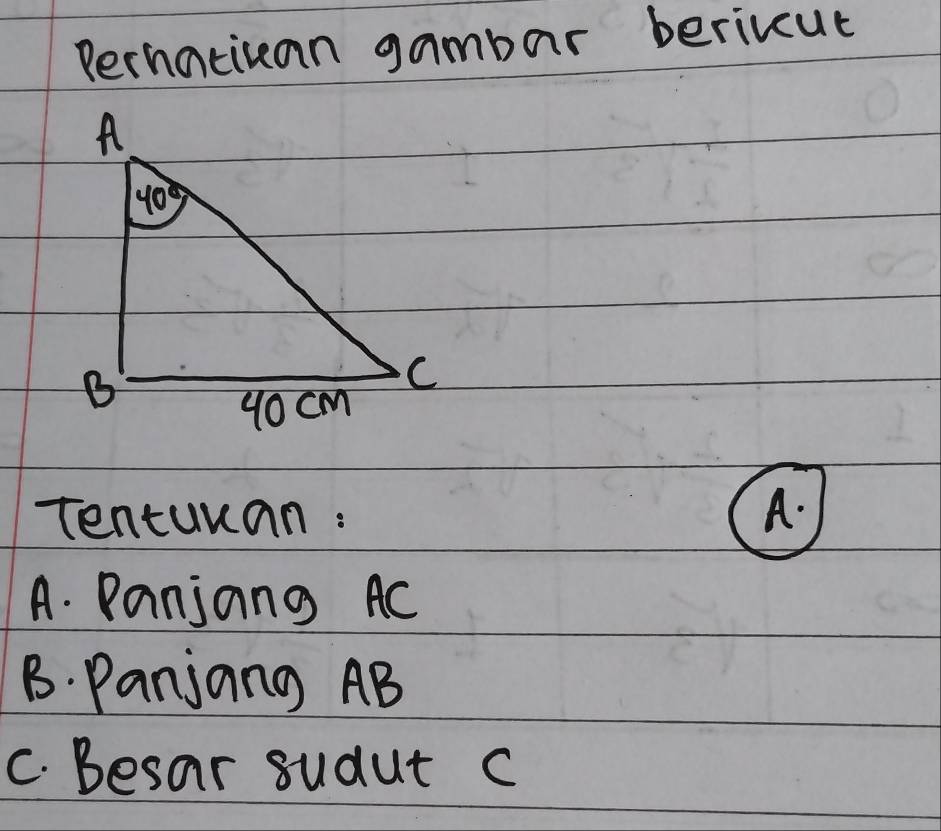 Perhatikan gambar berikut
A
40°
B
C
40 CM
Tentukan :
A.
A. Panjang AC
B. Panjang AB
C. Besar sudut C